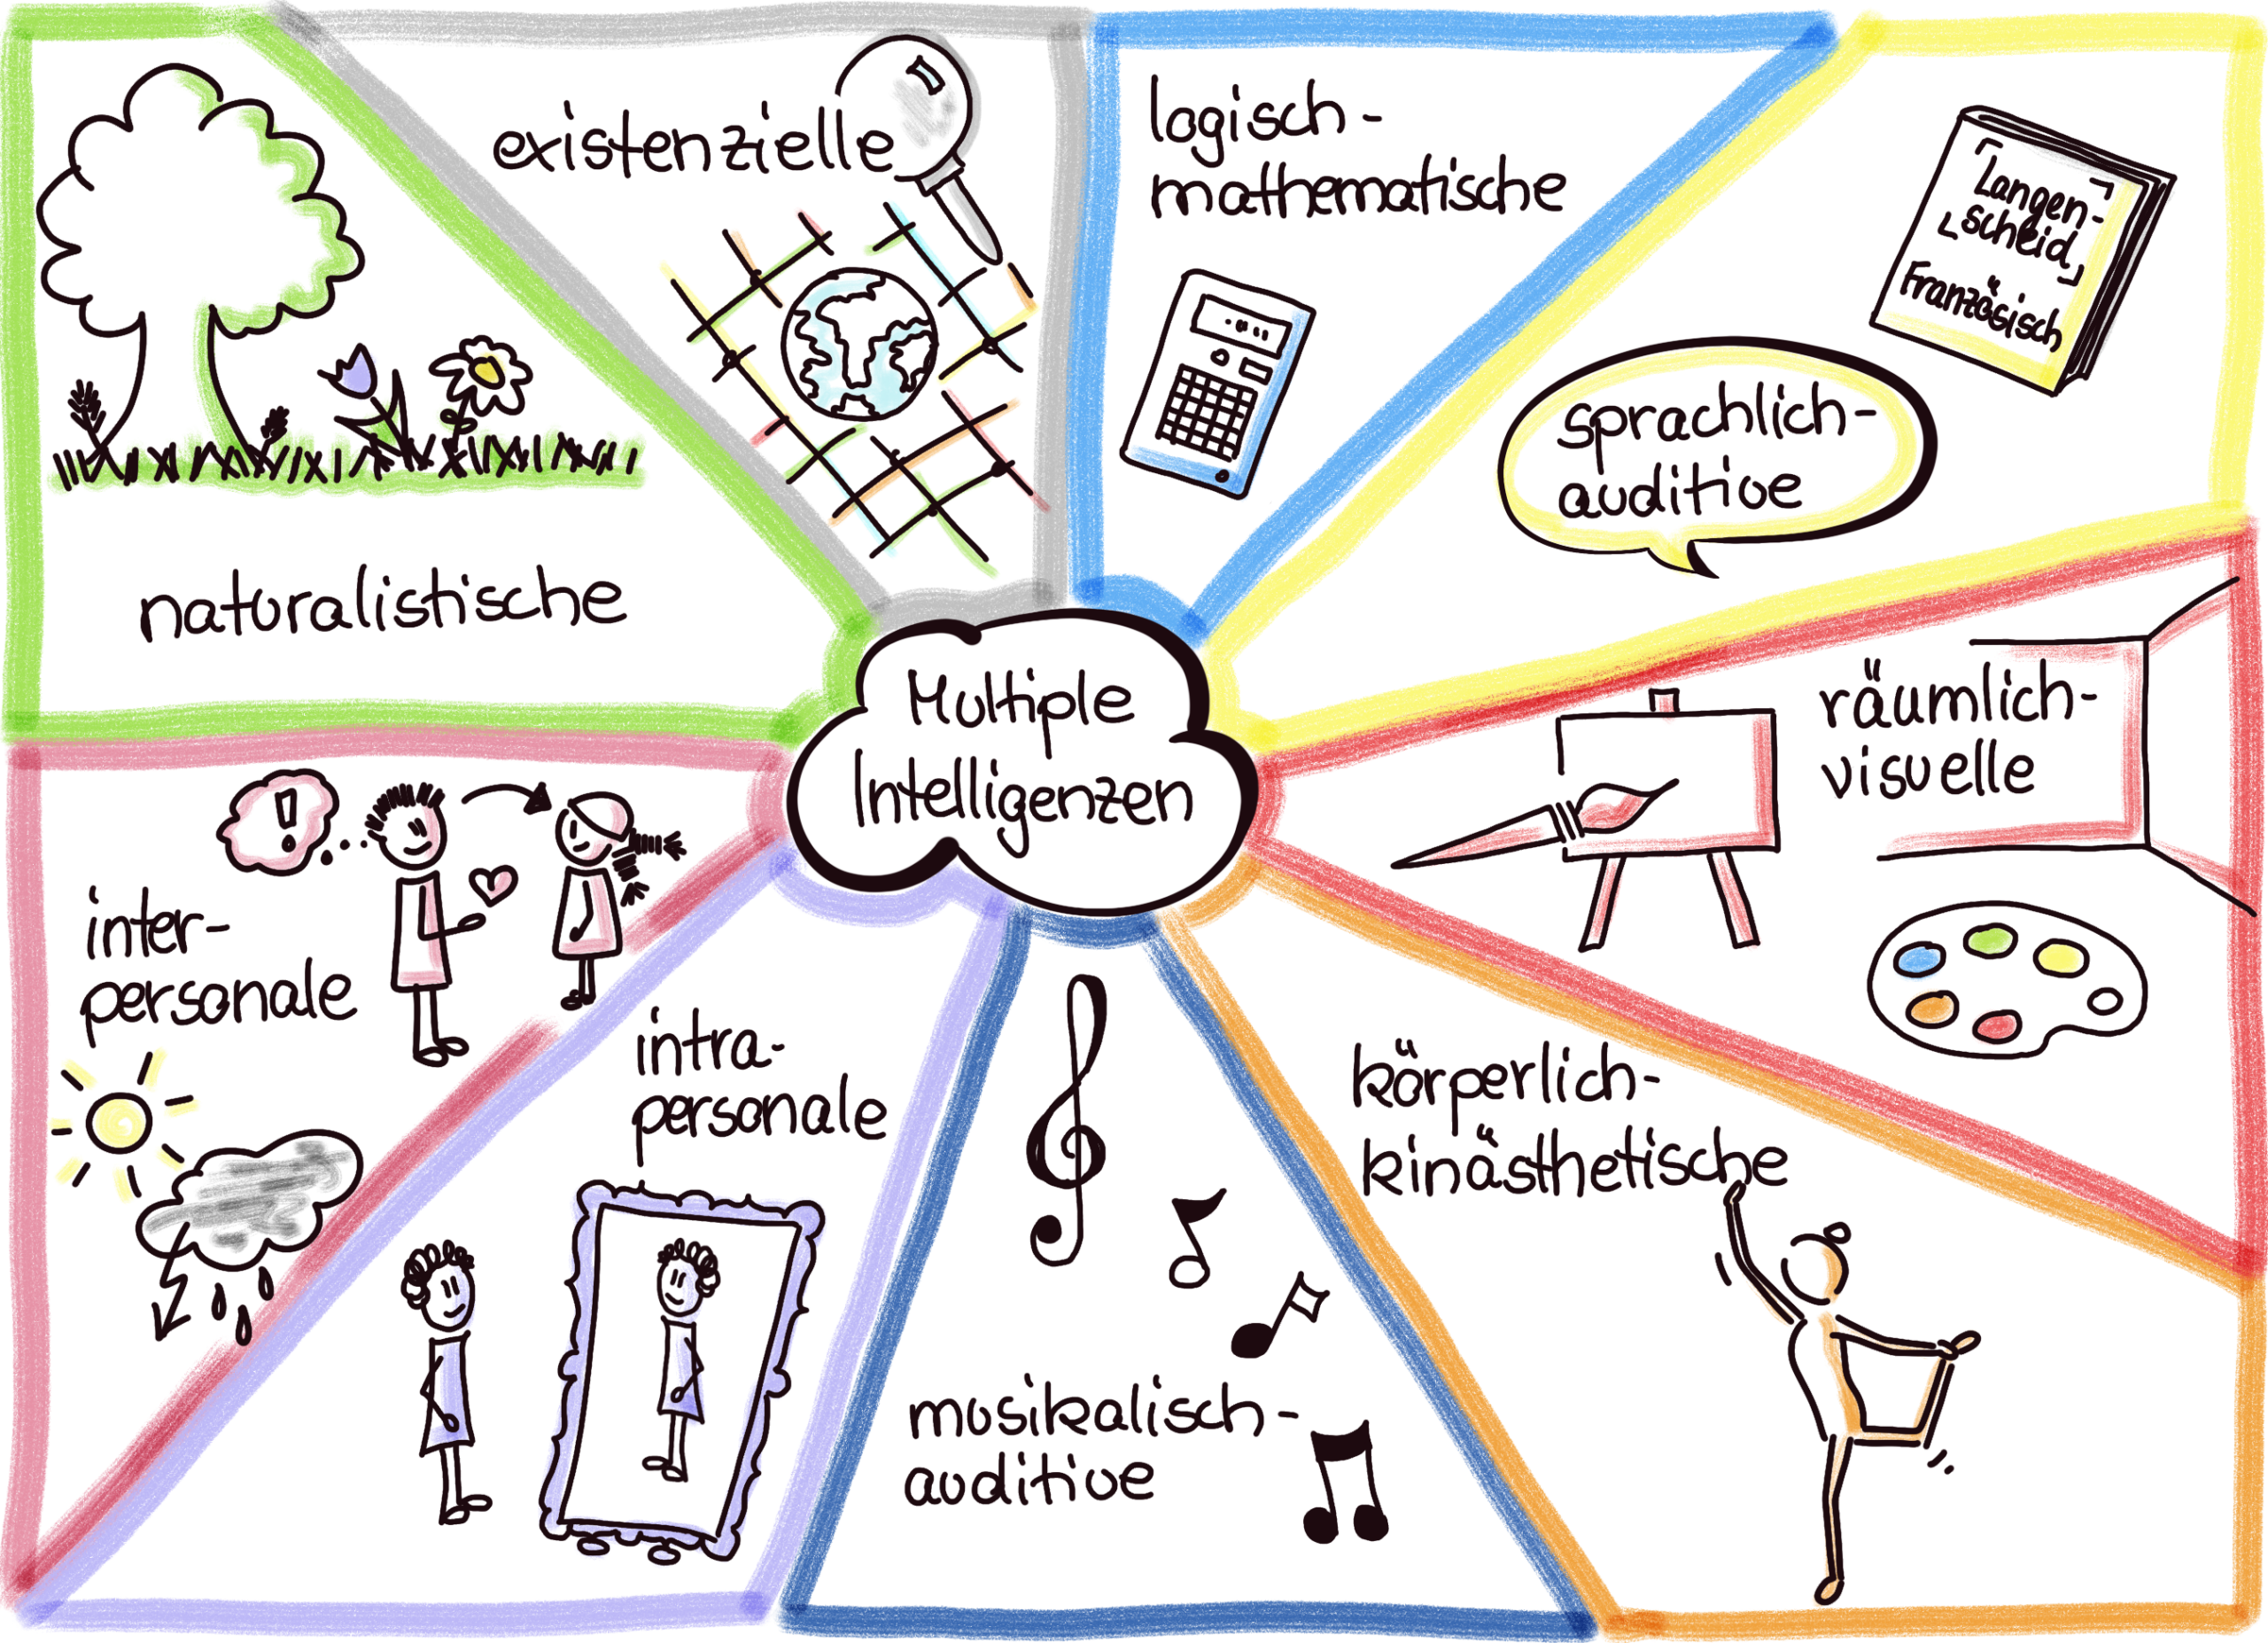 Multiple
Intelligenzen
existenzielle
logisch-
mathematische
Langen-
scheid
Französisch
sprachlich-
auditive
räumlich-
visuelle
körperlich-
kinästhetische
musikalisch-
auditive
intra-
personale
inter-
personale
!
naturalistische